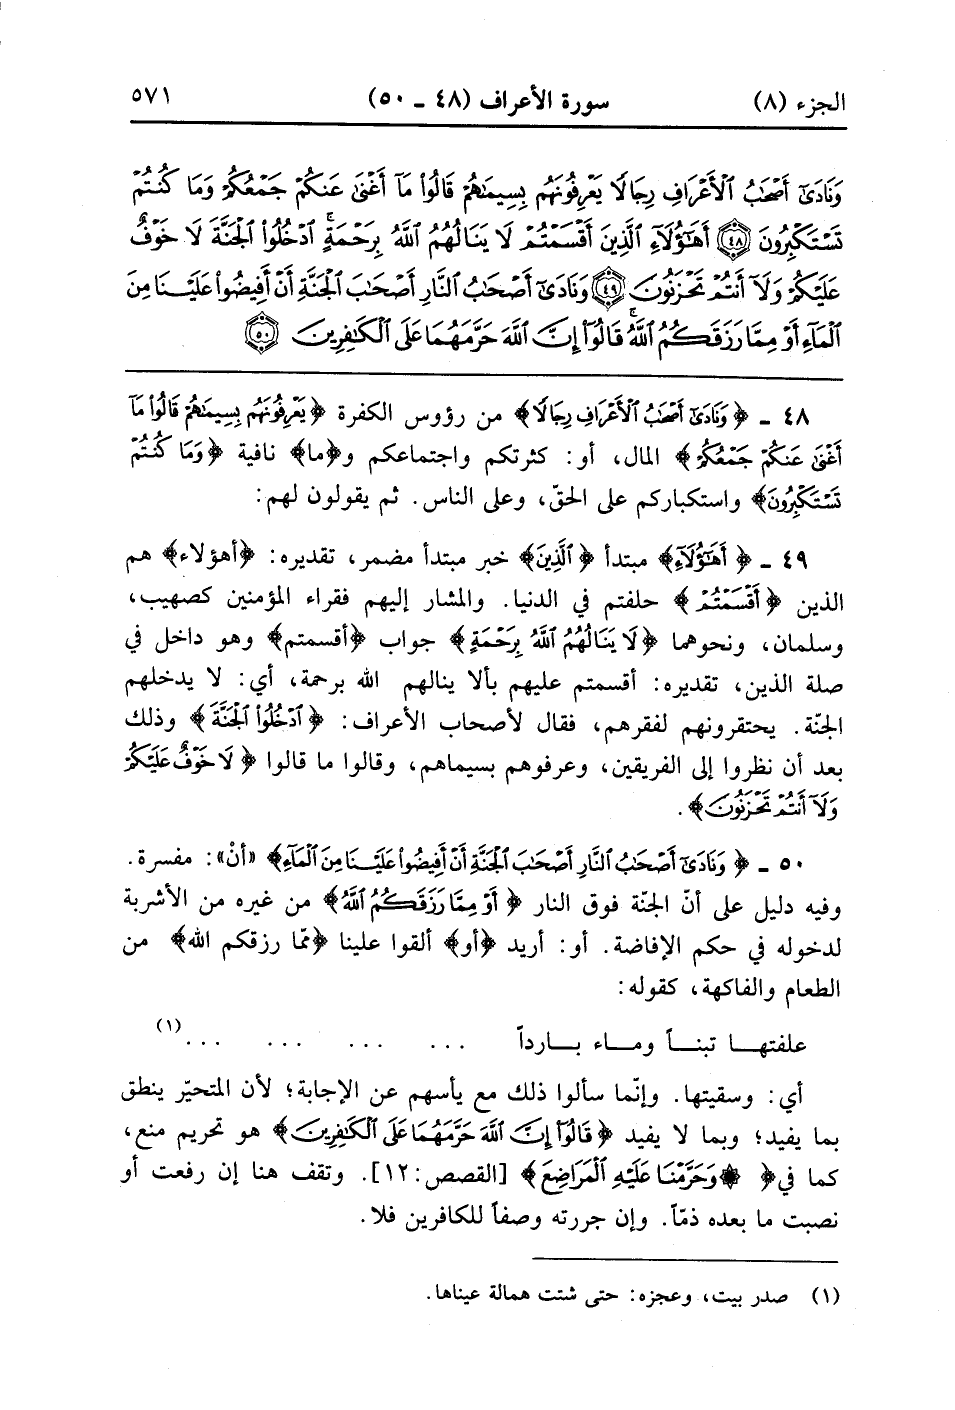 الجزء (٨) سورة الأعراف (٤٨ ـ ٥٠) ٥٧١
وَنَادَىٰٓ أَصْحَٰبُ ٱلْأَعْرَافِ رِجَالًا يَعْرِفُونَهُم بِسِيمَىٰهُمْ قَالُوا۟ مَآ أَغْنَىٰ عَنكُمْ جَمْعُكُمْ وَمَا كُنتُمْ
تَسْتَكْبِرُونَ ٤٨ أَهَٰٓؤُلَآءِ ٱلَّذِينَ أَقْسَمْتُمْ لَا يَنَالُهُمُ ٱللَّهُ بِرَحْمَةٍ ۚ ٱدْخُلُوا۟ ٱلْجَنَّةَ لَا خَوْفٌ
عَلَيْكُمْ وَلَآ أَنتُمْ تَحْزَنُونَ ٤٩ وَنَادَىٰٓ أَصْحَٰبُ ٱلنَّارِ أَصْحَٰبَ ٱلْجَنَّةِ أَنْ أَفِيضُوا۟ عَلَيْنَا مِنَ
ٱلْمَآءِ أَوْ مِمَّا رَزَقَكُمُ ٱللَّهُ ۚ قَالُوٓا۟ إِنَّ ٱللَّهَ حَرَّمَهُمَا عَلَى ٱلْكَٰفِرِينَ ٥٠
٤٨ ـ ﴿وَنَادَىٰٓ أَصْحَٰبُ ٱلْأَعْرَافِ رِجَالًا﴾ من رؤوس الكفرة ﴿يَعْرِفُونَهُم بِسِيمَىٰهُمْ قَالُوا۟ مَآ
أَغْنَىٰ عَنكُمْ جَمْعُكُمْ﴾ المال، أو: كثرتكم واجتماعكم و﴿ما﴾ نافية ﴿وَمَا كُنتُمْ
تَسْتَكْبِرُونَ﴾ واستكباركم على الحقّ، وعلى الناس. ثم يقولون لهم:
٤٩ ـ ﴿أَهَٰٓؤُلَآءِ﴾ مبتدأ ﴿ٱلَّذِينَ﴾ خبر مبتدأ مضمر، تقديره: ﴿أهؤلاء﴾ هم
الذين ﴿أَقْسَمْتُمْ﴾ حلفتم في الدنيا. والمشار إليهم فقراء المؤمنين كصهيب،
وسلمان، ونحوهما ﴿لَا يَنَالُهُمُ ٱللَّهُ بِرَحْمَةٍ﴾ جواب ﴿أقسمتم﴾ وهو داخل في
صلة الذين، تقديره: أقسمتم عليهم بألا ينالهم الله برحمة، أي: لا يدخلهم
الجنّة. يحتقرونهم لفقرهم، فقال لأصحاب الأعراف: ﴿ٱدْخُلُوا۟ ٱلْجَنَّةَ﴾ وذلك
بعد أن نظروا إلى الفريقين، وعرفوهم بسيماهم، وقالوا ما قالوا ﴿لَا خَوْفٌ عَلَيْكُمْ
وَلَآ أَنتُمْ تَحْزَنُونَ﴾.
٥٠ ـ ﴿وَنَادَىٰٓ أَصْحَٰبُ ٱلنَّارِ أَصْحَٰبَ ٱلْجَنَّةِ أَنْ أَفِيضُوا۟ عَلَيْنَا مِنَ ٱلْمَآءِ﴾ «أنْ»: مفسرة.
وفيه دليل على أنّ الجنّة فوق النار ﴿أَوْ مِمَّا رَزَقَكُمُ ٱللَّهُ﴾ من غيره من الأشربة
لدخوله في حكم الإفاضة. أو: أريد ﴿أو﴾ ألقوا علينا ﴿ممّا رزقكم الله﴾ من
الطعام والفاكهة، كقوله:
علفتهـا تبنـاً ومـاء بـارداً ... ... ... ...(١)
أي: وسقيتها. وإنّما سألوا ذلك مع يأسهم عن الإجابة؛ لأن المتحيّر ينطق
بما يفيد؛ وبما لا يفيد ﴿قَالُوٓا۟ إِنَّ ٱللَّهَ حَرَّمَهُمَا عَلَى ٱلْكَٰفِرِينَ﴾ هو تحريم منع،
كما في ﴿۞ وَحَرَّمْنَا عَلَيْهِ ٱلْمَرَاضِعَ﴾ [القصص: ١٢]. وتقف هنا إن رفعت أو
نصبت ما بعده ذمّاً. وإن جررته وصفاً للكافرين فلا.
(١) صدر بيت، وعجزه: حتى شتت همالة عيناها.